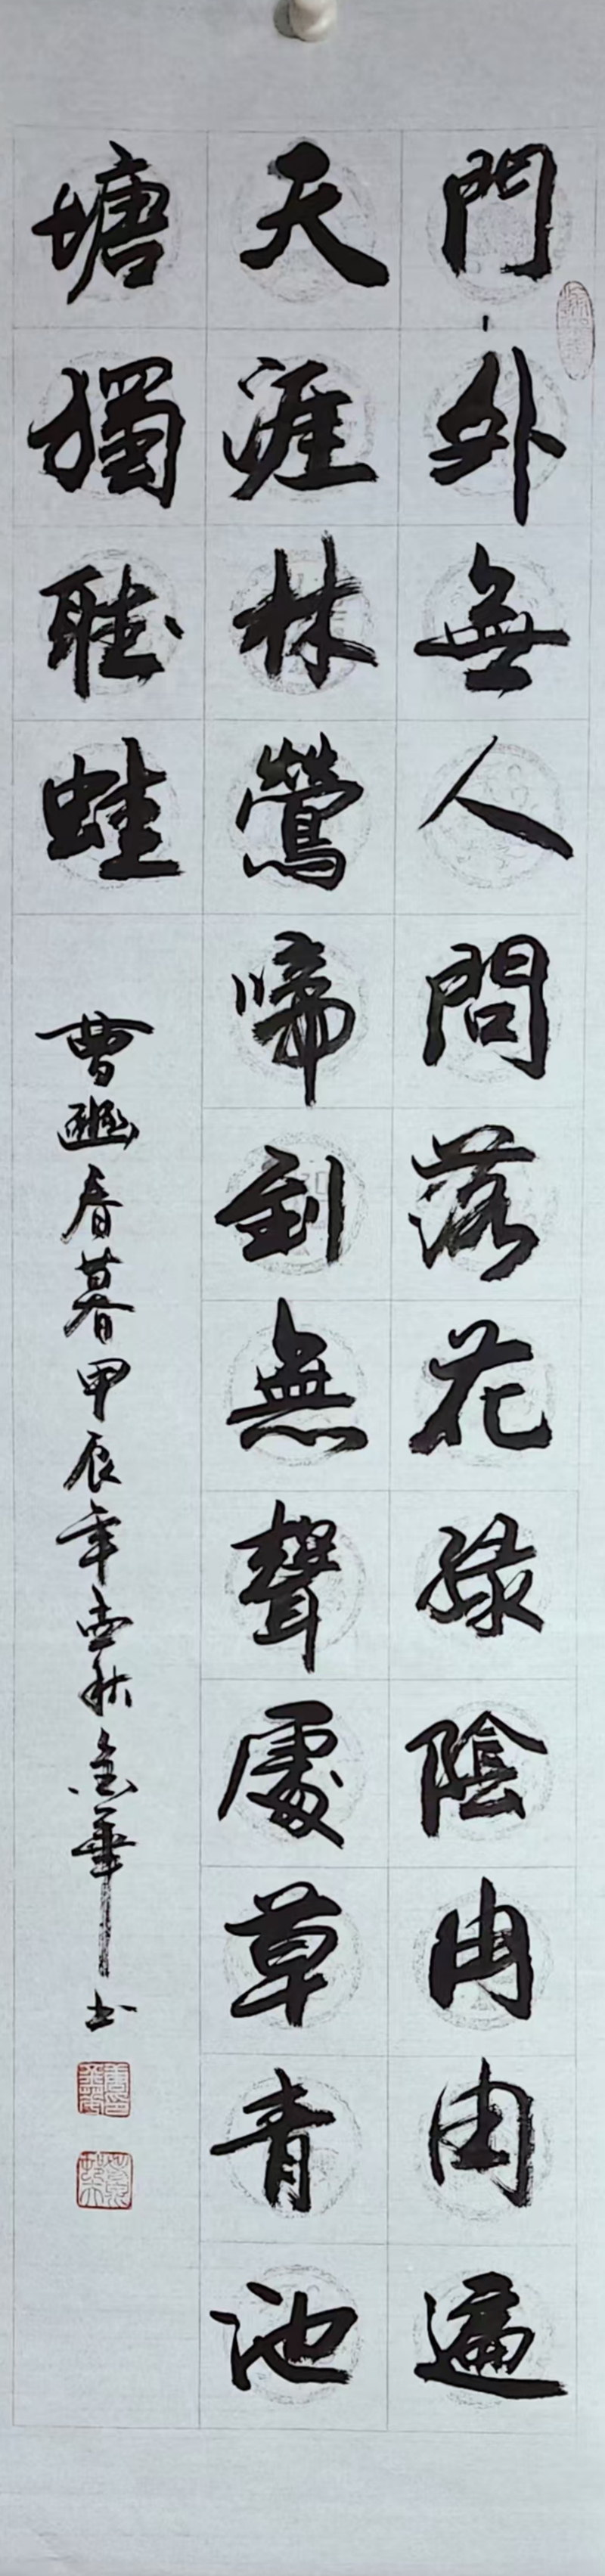 門外無人問落花綠陰冉冉遍
天涯林鶯啼到無聲處草青池
塘獨聽蛙
曹豳春暮甲辰年孟秋金華书